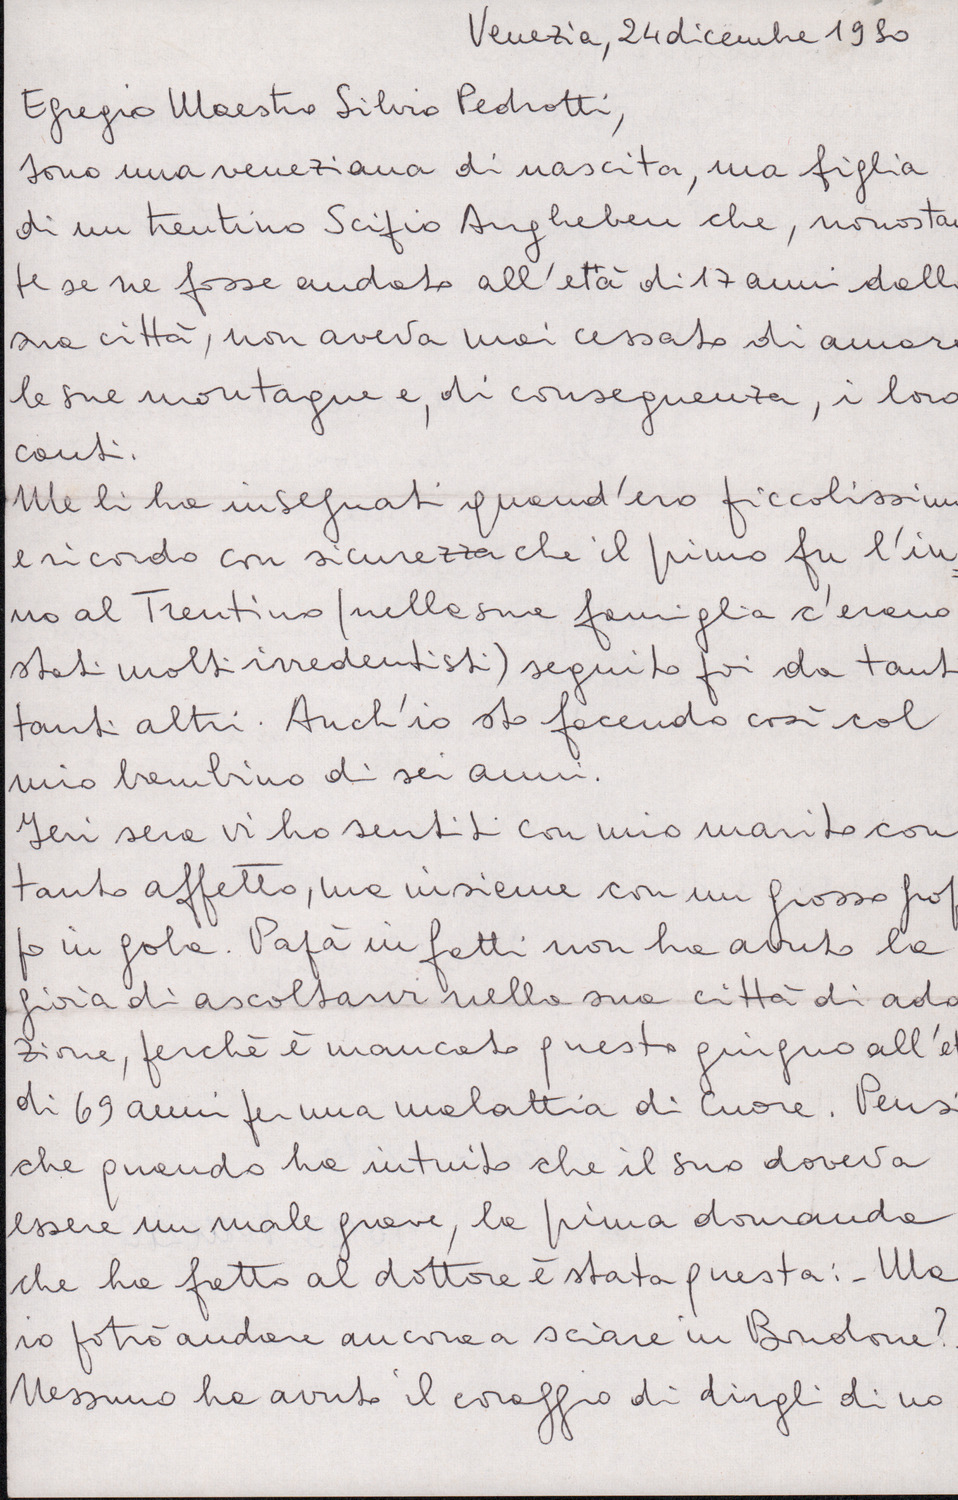 Venezia, 24 dicembre 1980
Egregio Maestro Silvio Pedrotti,
sono una veneziana di nascita, ma figlia
di un trentino Scipio Angheben che, nonostan
te se ne fosse andato all'età di 17 anni dall
sua città, non aveva mai cessato di amare
le sue montagne e, di conseguenza, i loro
canti.
Me li ha insegnati quand'ero piccolissim
e ricordo con sicurezza che il primo fu l'in=
no al Trentino (nella sua famiglia c'erano
stati molti irredentisti) seguito poi da tant
tanti altri. Anch'io sto facendo così col
mio bambino di sei anni.
Ieri sera vi ho sentiti con mio marito con
tanto affetto, ma insieme con un grosso grop
po in gola. Papà infatti non ha avuto la
gioia di ascoltarvi nella sua città di ado
zione, perchè è mancato questo giugno all'et
di 69 anni per una malattia di cuore. Pensi
che quando ha intuito che il suo doveva
essere un male grave, la prima domanda
che ha fatto al dottore è stata questa: - Ma
io potrò andare ancora a sciare in Bondone?.
Nessuno ha avuto il coraggio di dirgli di no